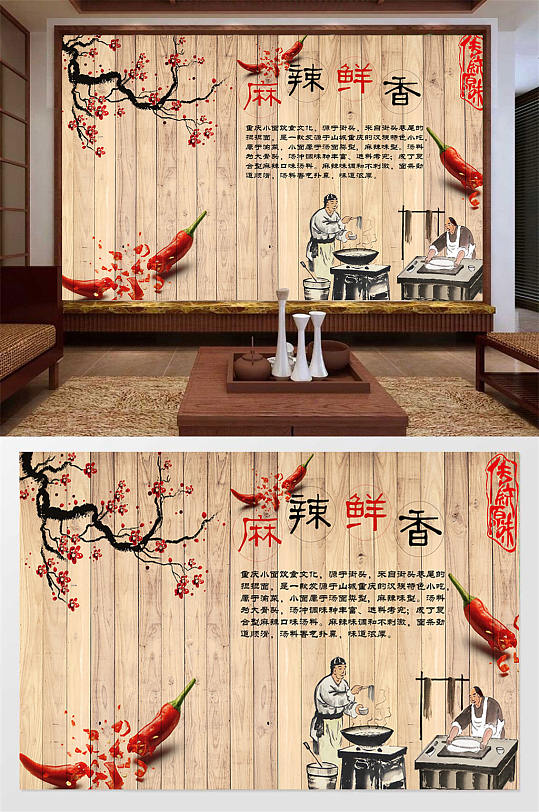 麻辣鲜香
重庆小面饮食文化，源于街头，来自街头巷尾的
担担面，是一款发源于山城重庆的汉族特色小吃
属于渝菜，小面属于汤面类型，麻辣味型。汤料
为大骨头，汤冲调味种丰富、选料考究；成了复
合型麻辣口味汤料。麻辣味调和不刺激，面条劲
道顺滑，汤料香艺扑鼻，味道浓厚。
麻辣鲜香
重庆小面饮食文化，源于街头，来自街头巷尾的
担担面，是一款发源于山城重庆的汉族特色小吃
属于渝菜，小面属于汤面类型，麻辣味型。汤料
为大骨头，汤冲调味种丰富、选料考究；成了复
合型麻辣口味汤料。麻辣味调和不刺激，面条劲
道顺滑，汤料香艺扑鼻，味道浓厚。